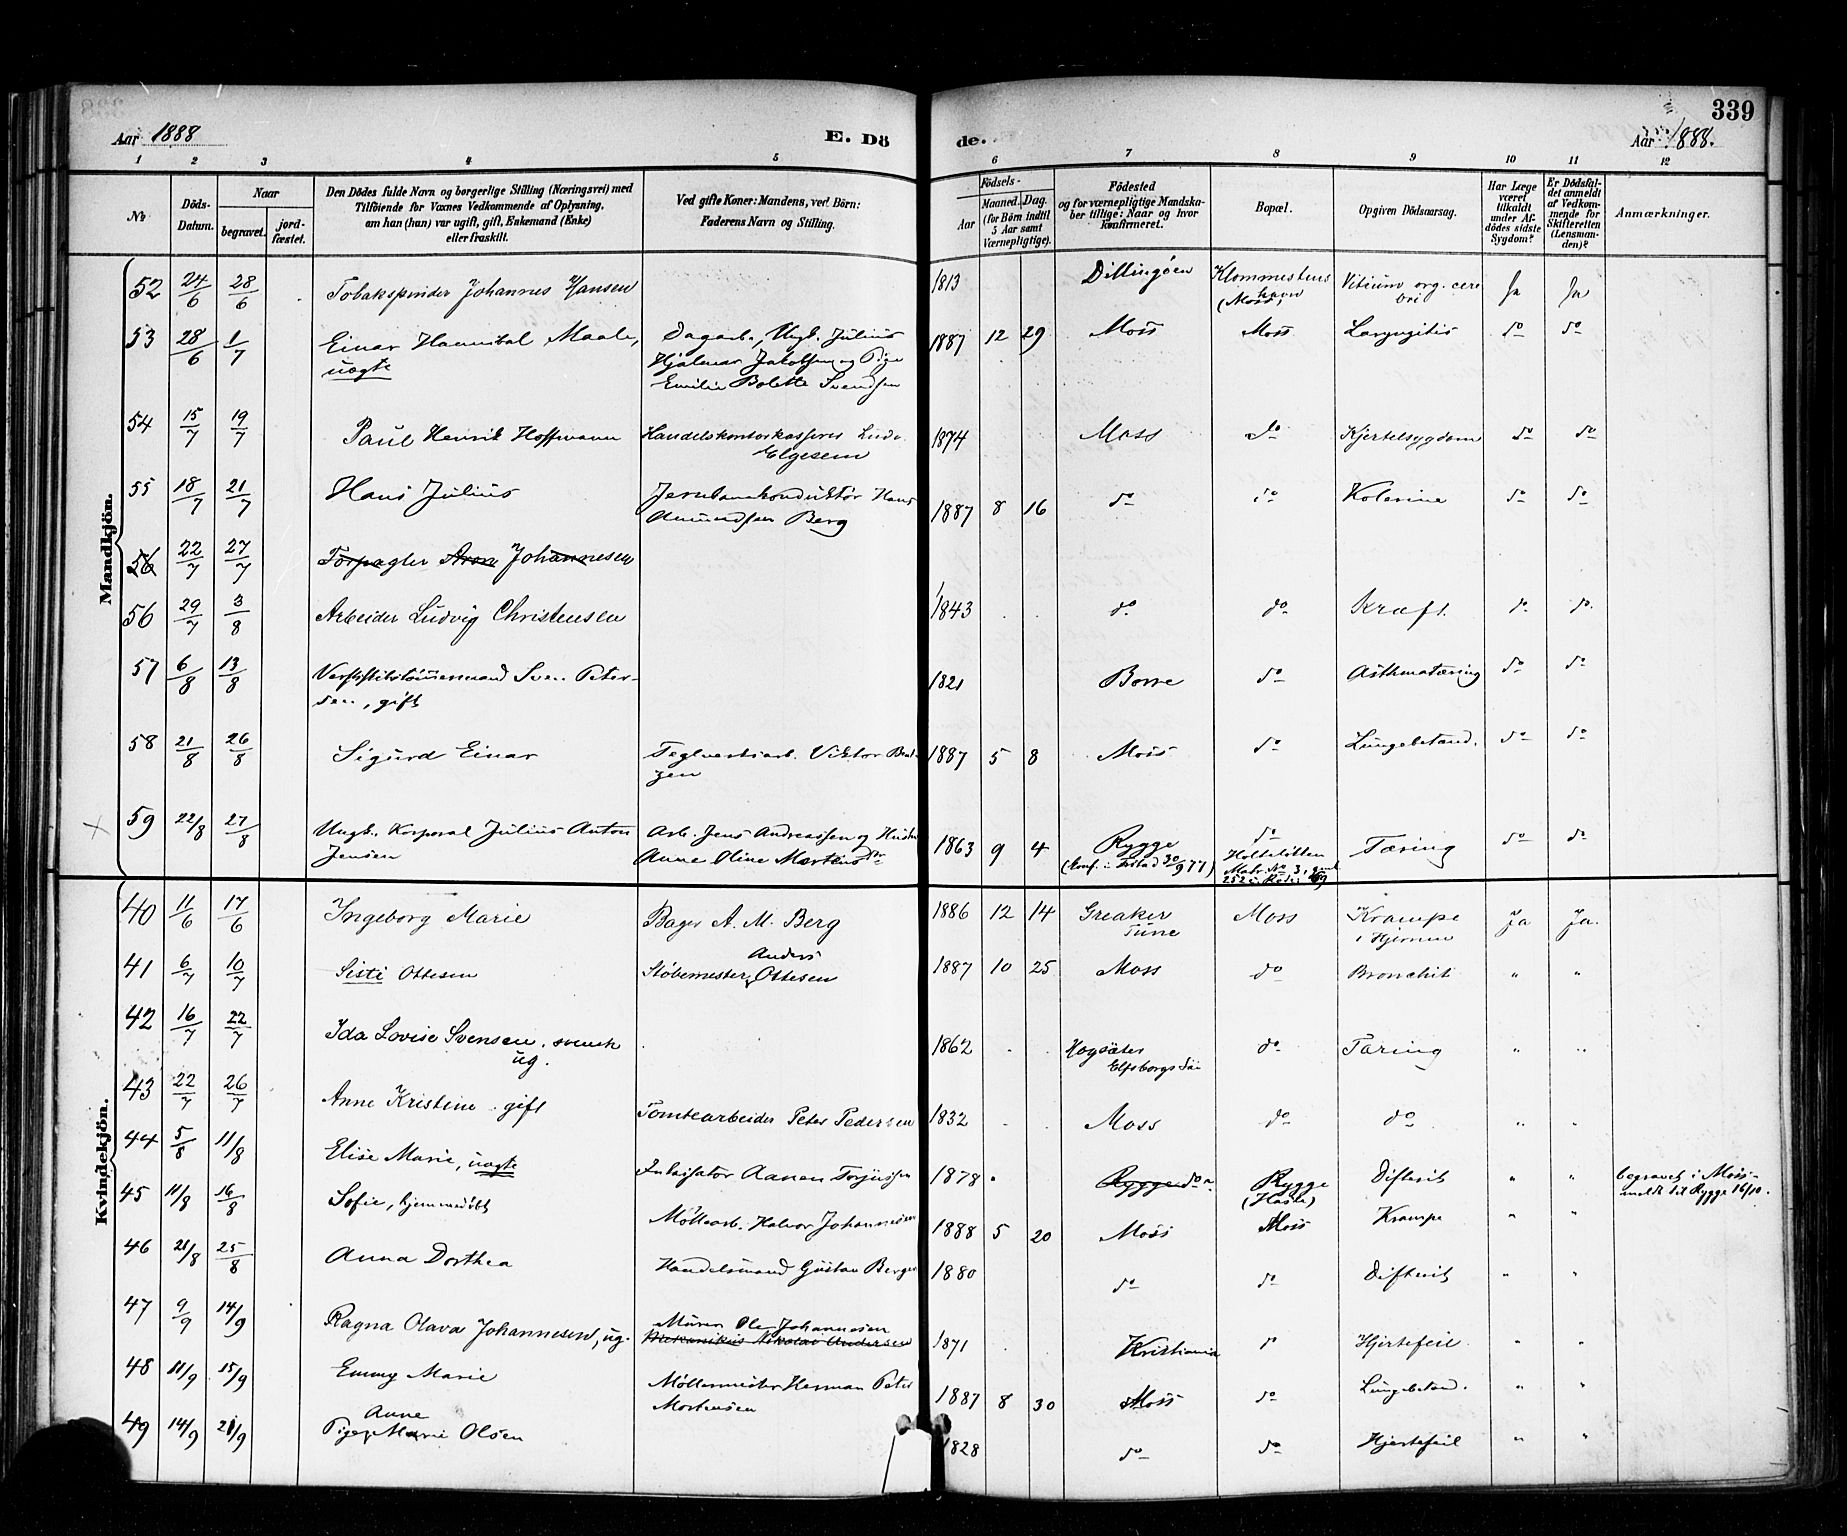 339
Aar 1888
E. Dö
de.
Aar 1888.
1 2 3 4 5 6 7 8 9 10 11 12
No
Döds-
Datum.
Naar
begravet.
jord-
fæstet.
Den Dödes fulde Navn og borgerlige Stilling (Næringsvei) med
Tilföiende for Vaanes Vedkommende af Oplysning,
om han (hun) var ugift, gift, Enkemand (Enke)
eller fraskilt.
Ved gifte Koner: Mandens, ved Börn:
Faderens Navn og Stilling.
Födsels-
Aar
Maaned.
Dag.
(for Börn indtil
5 Aar samt
Værnepligtige).
Födested
og for værnepligtige Mandska-
ber tillige: Naar og hvor
konfirmeret.
Bopæl.
Opgiven Dödsaarsag.
Har Læge
været
tilkaldt
under Af-
dödes sidste
Sygdom?
Er Dödsfal-
det anmeldt
af Vedkom-
mende for
Skifteretten
(Lensman-
den)?
Anmærkninger.
Mandkjön.
52 24/6 28/6 Tobakspinder Johannes Hansen 1813 Dillingöen Klommestens havn (Moss) Vitium org. cere bri Ja Ja
53 28/6 1/7 Einar Hannibal Maale, Dagarb., Ungk. Julius 1887 12 29 Moss Moss Laryngitis do do
uægte Hjalmar Jakobsen og Pige
Emilie Bolette Svendsen
54 15/7 19/7 Paul Henrik Hoffmann Handelskontorkasserer 1874 Moss do Kjertelsygdom do do
Elgesem
55 18/7 21/7 Hans Julius Jernbanekonduktör Hans 1887 8 16 do do Kolerine do do
Amundsen Berg
56 22/7 27/7 Forpagter Aron Johannesen
56 29/7 3/8 Arbeider Ludvig Christensen 1843 do do Kræft do do
57 6/8 13/8 Sven Peter- 1821 Borre do Asthmatæring do do
sen, gift
58 21/8 26/8 Sigurd Einar Teglverksarb. Viktor 1887 5 8 Moss do Lungebetænd. do do
59 22/8 27/8 Ungk. Korporal Julius Anton Arb. Jens Andreassen og Hustru 1863 9 4 Rygge do Tæring do do
Jensen Anne Oline Martinsdtr (konf. i 30/9 77)
Kvindekjön.
40 11/6 17/6 Ingeborg Marie Bager A. M. Berg 1886 12 14 Greaker Moss Krampe Ja Ja.
Tune i Hjernen
41 6/7 10/7 Sisti Ottesen Støbemester Anders Ottesen 1887 10 25 Moss do Bronchit " "
42 16/7 22/7 Ida Lovise Svensen, svensk 1862 Høgsäter do Tæring " "
ug. Elfsborgs län
43 22/7 26/7 Anne Kristine gift Tomtearbeider Peter Pedersen 1832 Moss do do " "
44 5/8 11/8 Elise Marie, uægte Aanen Torjussen 1878 Rygge do Rygge (Hasle) Difterit " " begravet i Moss-
meldt til Rygge 16/10.
45 11/8 16/8 Sofie, hjemmedøbt Möllearb. Halvor Johannesen 1888 5 20 Moss Moss Krampe " "
46 21/8 25/8 Anna Dorthea Handelsmand Gustav Berger 1880 do do Difterit " "
47 9/9 14/9 Ragna Olava Johannesen, ug. Murer Ole Johannesen 1871 Kristiania Hjertefeil " "
Mekanikus Nikolai Andersen
48 11/9 15/9 Emmy Marie Möllermester Herman Peter 1887 8 30 Moss do Lungebetænd. " "
Mortensen
49 14/9 21/9 Pige Anne Marie Olsen 1828 do do Hjertefeil " "